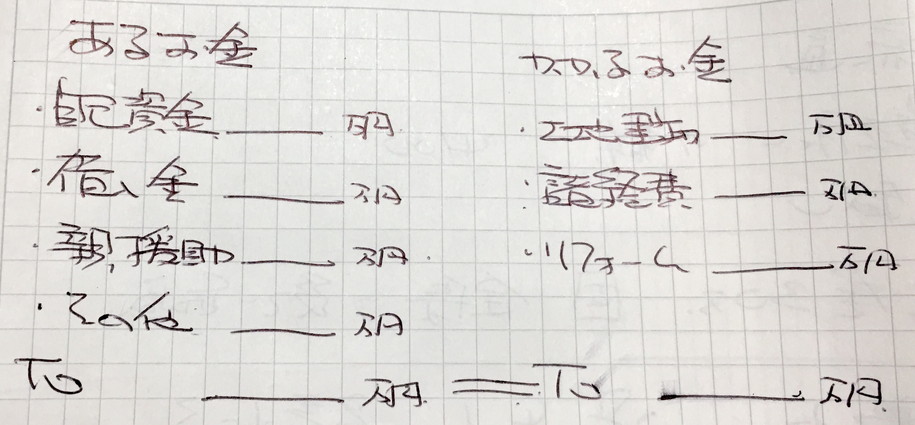 あるお金
・自己資金 ―― 万円
・借入金 ―― 万円
・親、援助 ―― 万円
・その他 ―― 万円
To ―― 万円
かかるお金
・土地、建物 ―― 万円
・諸経費 ―― 万円
・リフォーム ―― 万円
= To ―― 万円